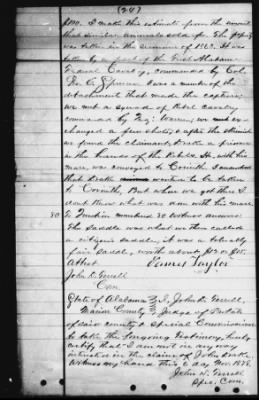 (247)
$100. I made this estimate from the amount
that similar animals sold for. The property
was taken in the summer of 1862. It was
taken by a part of the First Alabama
Federal Cavalry, commanded by Col.
Geo. E. Spencer. I was a member of the
detachment that made this capture.
we met a squad of Rebel Cavalry
commanded by Warren, we ex-
changed a few shots, & after the skirmish
we found the claimant, a prisoner
in the hands of the Rebels. He, with his
mare, was conveyed to Corinth. I
that to be taken
to Corinth, But when we got there I
dont know what was don with his mare.
30 To Question numbered 30 witness answers.
The saddle was what we then called
a citizens saddle, it was a tolerably
fair saddle, worth about $12 or $15.
Attest. Taylor
John D. Terrell
Com.
State of Alabama } I, John D. Terrell,
Marion County } Judge of Probate
of said county & Special Commissioner
to take the foregoing testimony, hereby
certify that I am not in any way
interested in the claim of John
Witness my hand This 6 day Nov. 1876.
John D. Terrell
Spec. Com.